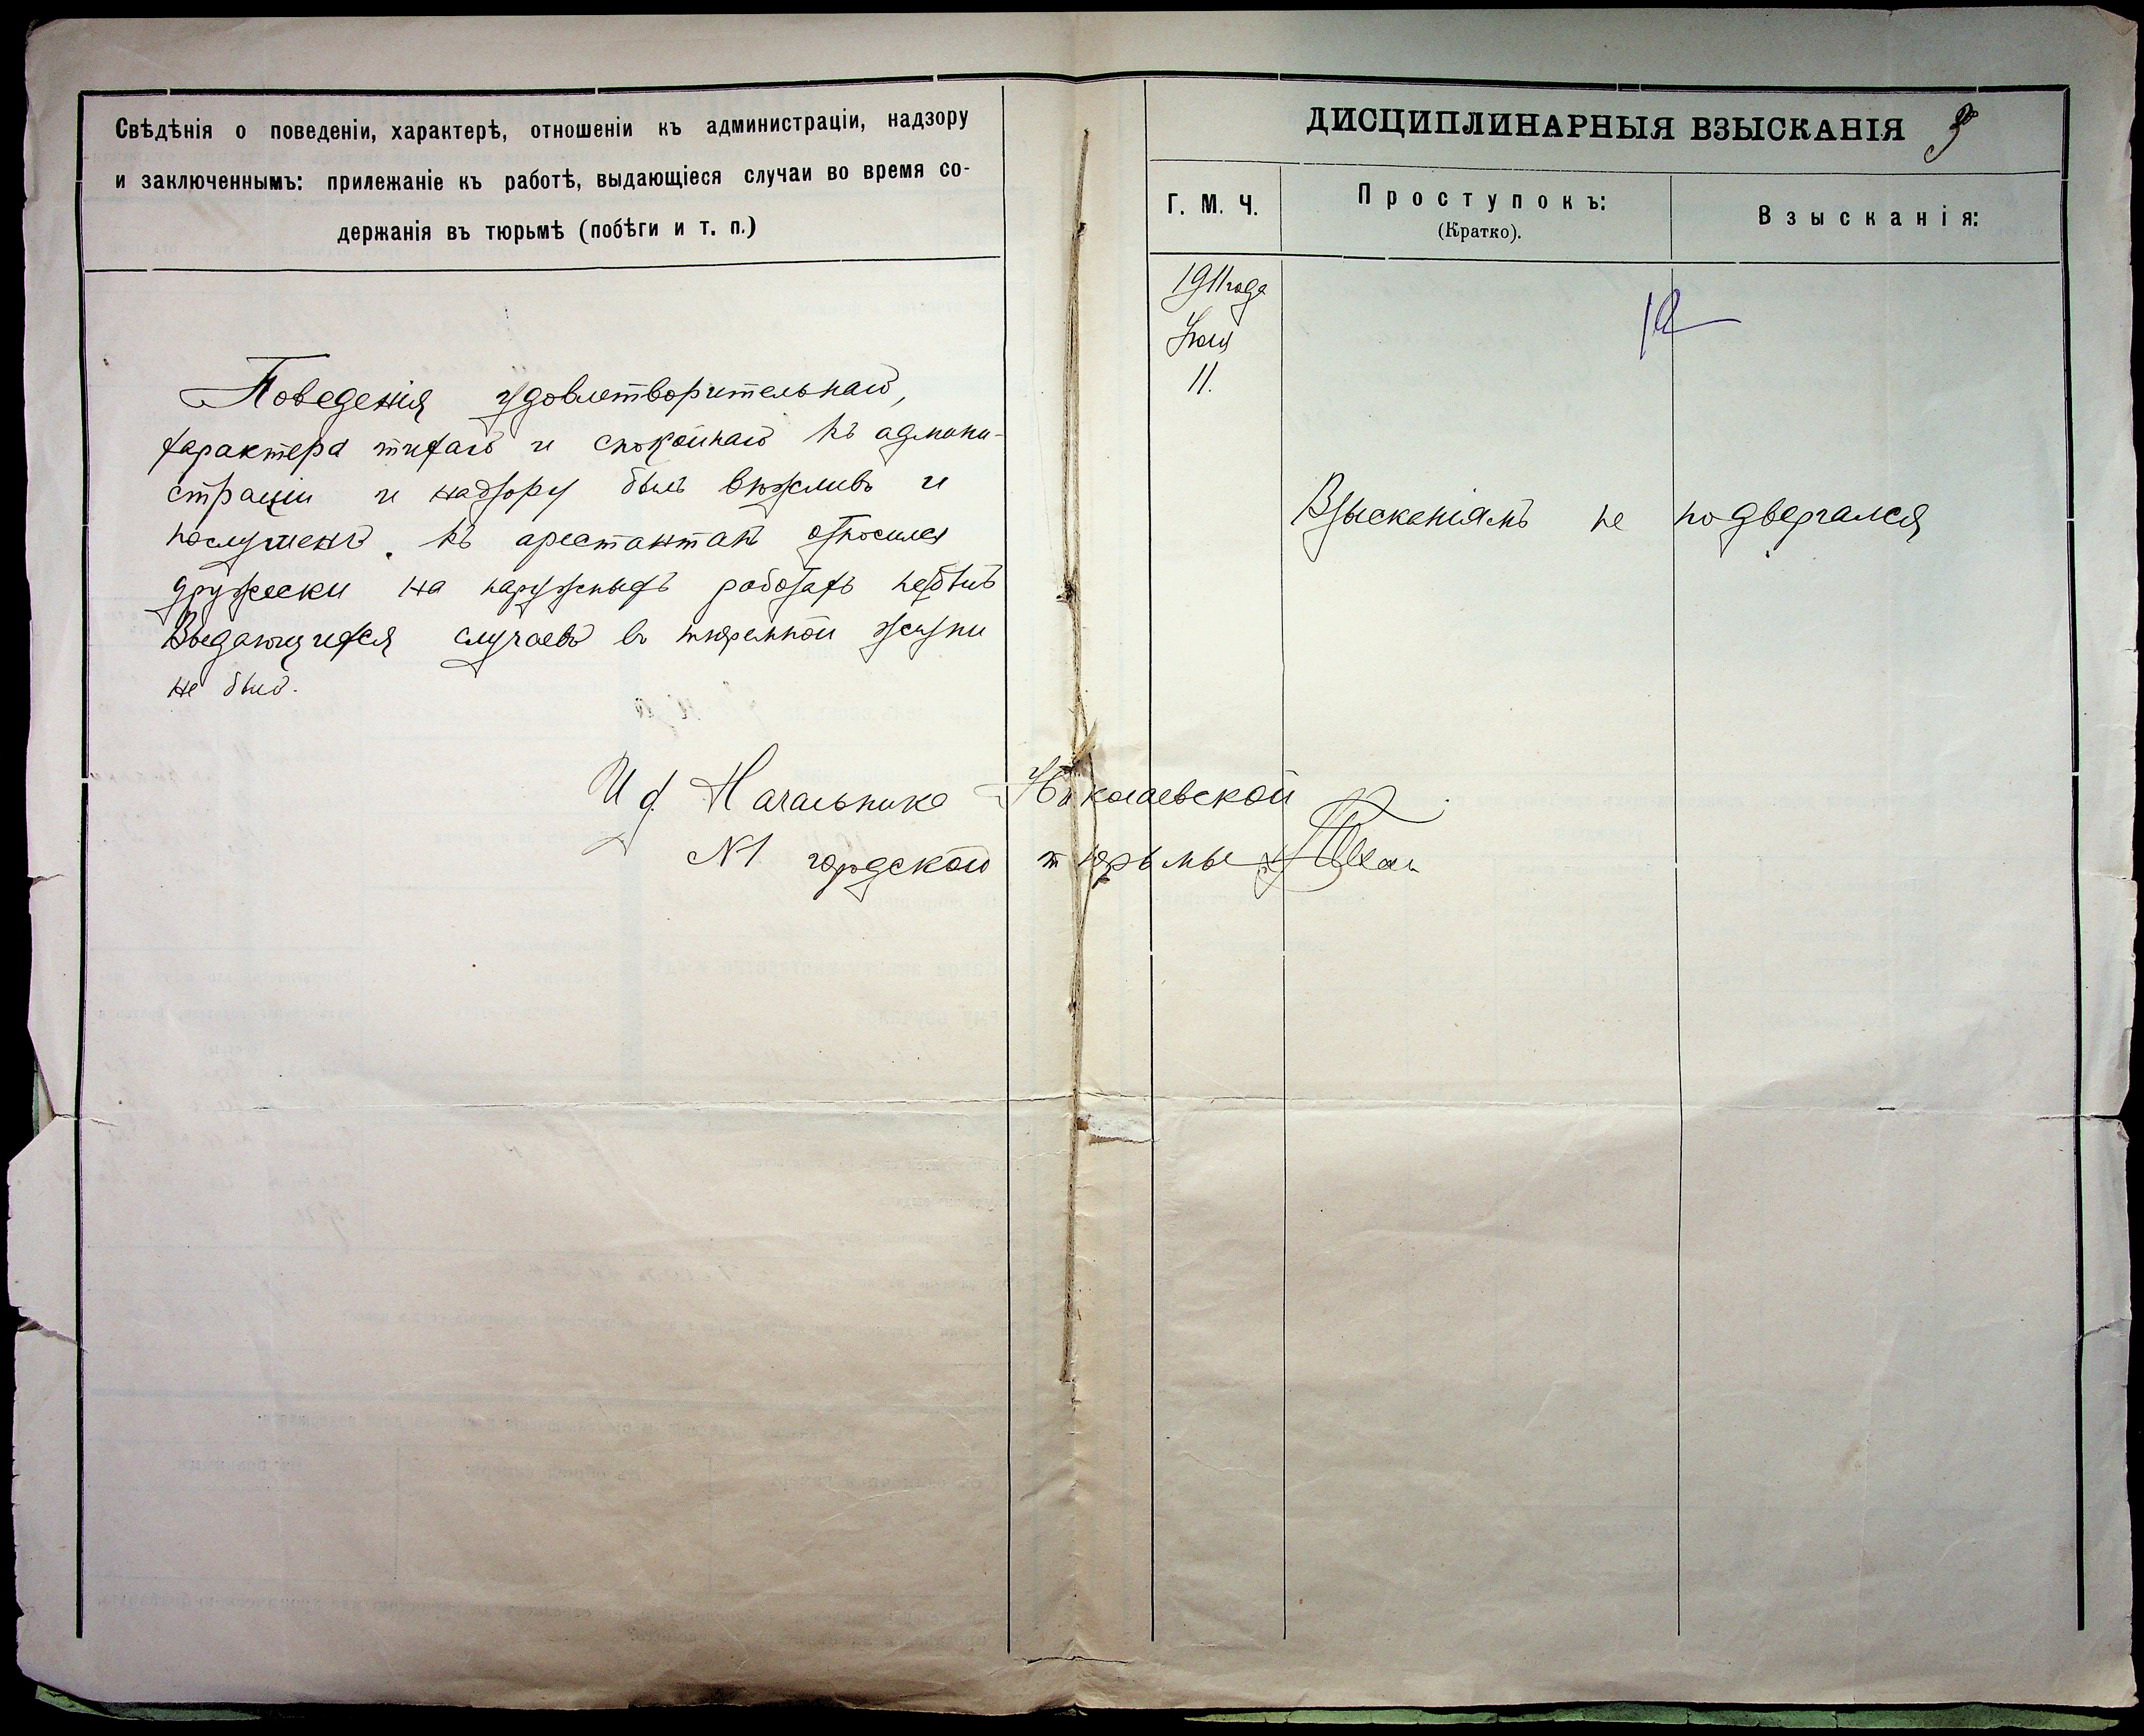 Свѣдѣнія о поведеніи, характерѣ, отношеніи къ администраціи, надзору
и заключеннымъ: прилежаніе къ работѣ, выдающіеся случаи во время со-
держанія въ тюрьмѣ (побѣги и т. п.)
Поведенія удовлетворительнаго,
характера тихаго и спокойнаго къ админи-
страціи и надзору былъ вѣжливъ и
послушенъ. къ арестантамъ относился
дружески на наружныхъ работахъ не былъ
Выдающихся случаевъ въ тюремной жизни
не было.
И д. Начальника Николаевской
№1 городской тюрьмы
ДИСЦИПЛИНАРНЫЯ ВЗЫСКАНІЯ
Г. М. Ч.
Проступокъ:
(Кратко).
Взысканія:
1911 года
Іюля
11.
Взысканіямъ не подвергался